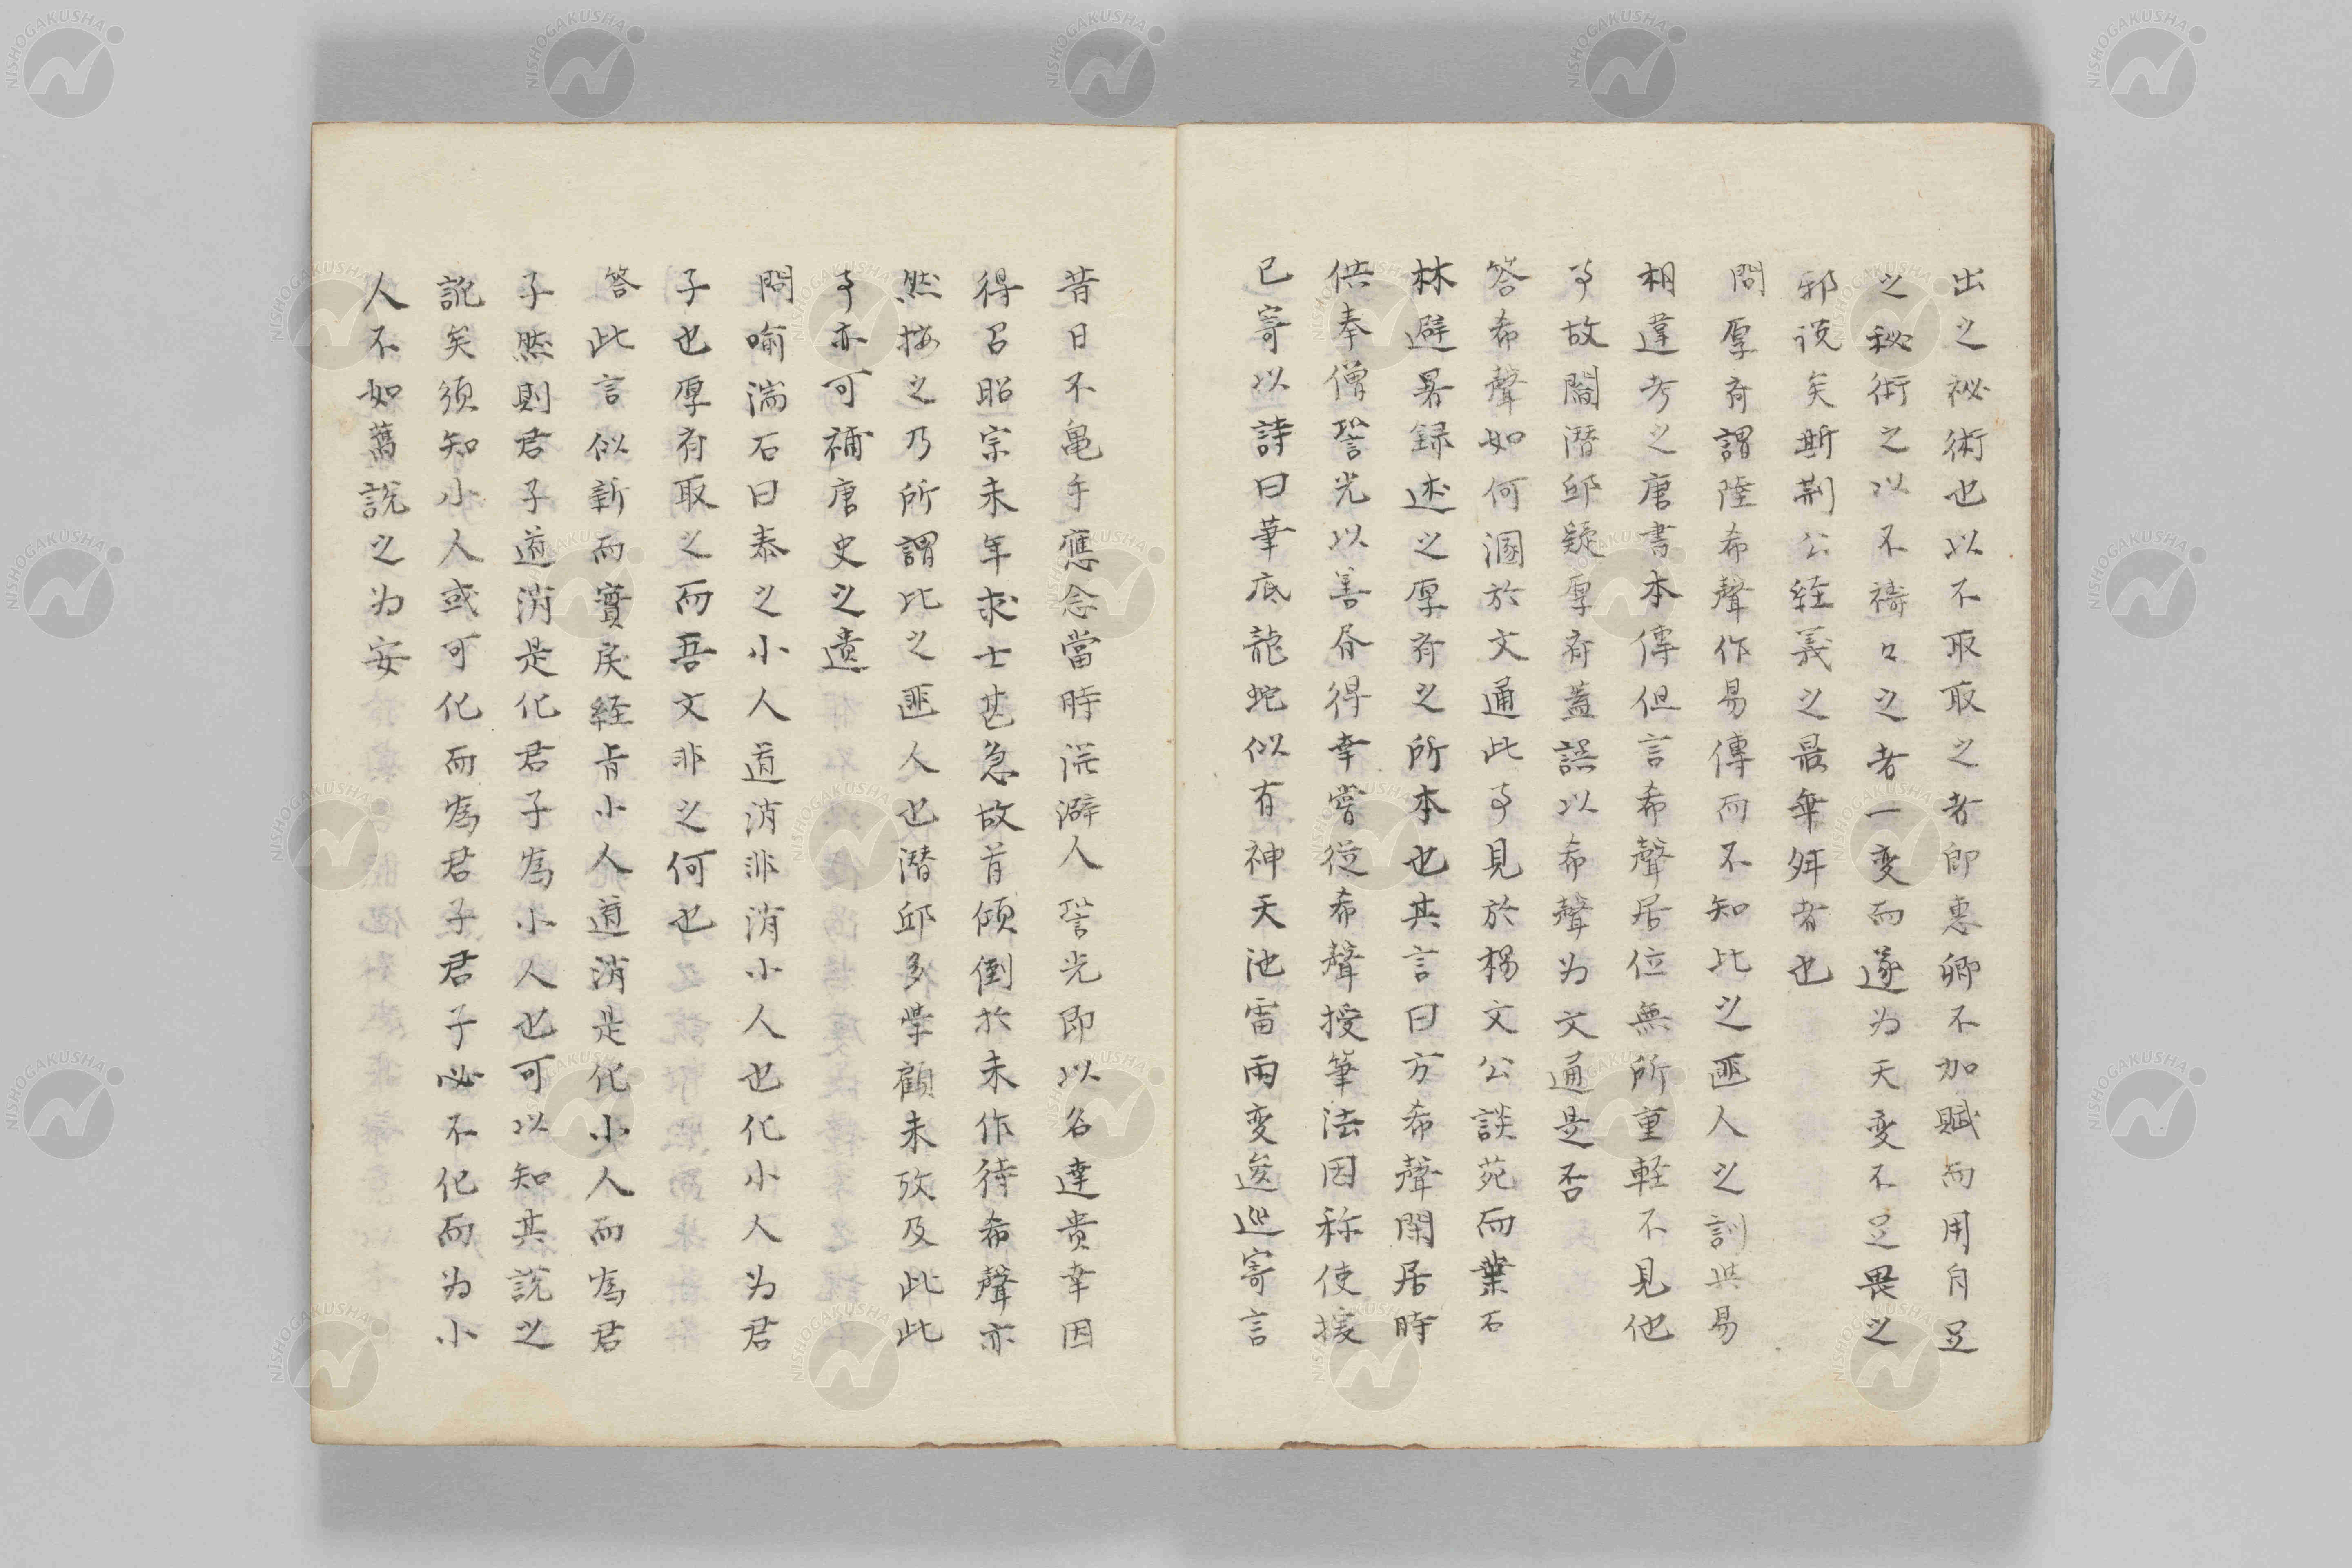 出之祕術也以不取取之者即惠卿不加賦而用自足
之秘術之以不禱々之者一変而遂为天変不足畏之
邪说矣斯荆公経義之最舛者也
問厚斎謂陸希聲作易傳而不知比之匪人之訓與易
相違考之唐書本傳但言希聲居位無所重軽不見他
事故閻潜邱疑厚斎蓋誤以希聲为文通是否
答希聲如何溷於文通此事見於楊文公談苑而葉石
林避暑録述之厚斎之所本也其言曰方希聲閑居時
供奉僧䛒光以善昼得幸嘗從希聲授筆法因称使援
已寄以詩曰華底龍蛇似有神天池雷雨変逡巡寄言
昔日不亀手應念當時洴澼人䛒光即以名達貴幸因
得召昭宗末年求士甚急故首傾倒於未作待希聲亦
然按之乃所謂比之匪人也潜邱多学顧未攷及此此
事亦可補唐史之遗
問喻湍石曰泰之小人道消非消小人也化小人为君
子也厚斎取之而吾丈非之何也
答此言似新而實戾経旨小人道消是化小人而為君
子然則君子道消是化君子為小人也可以知其說之
訛矣須知小人或可化而為君子君子必不化而为小
人不如舊説之为安